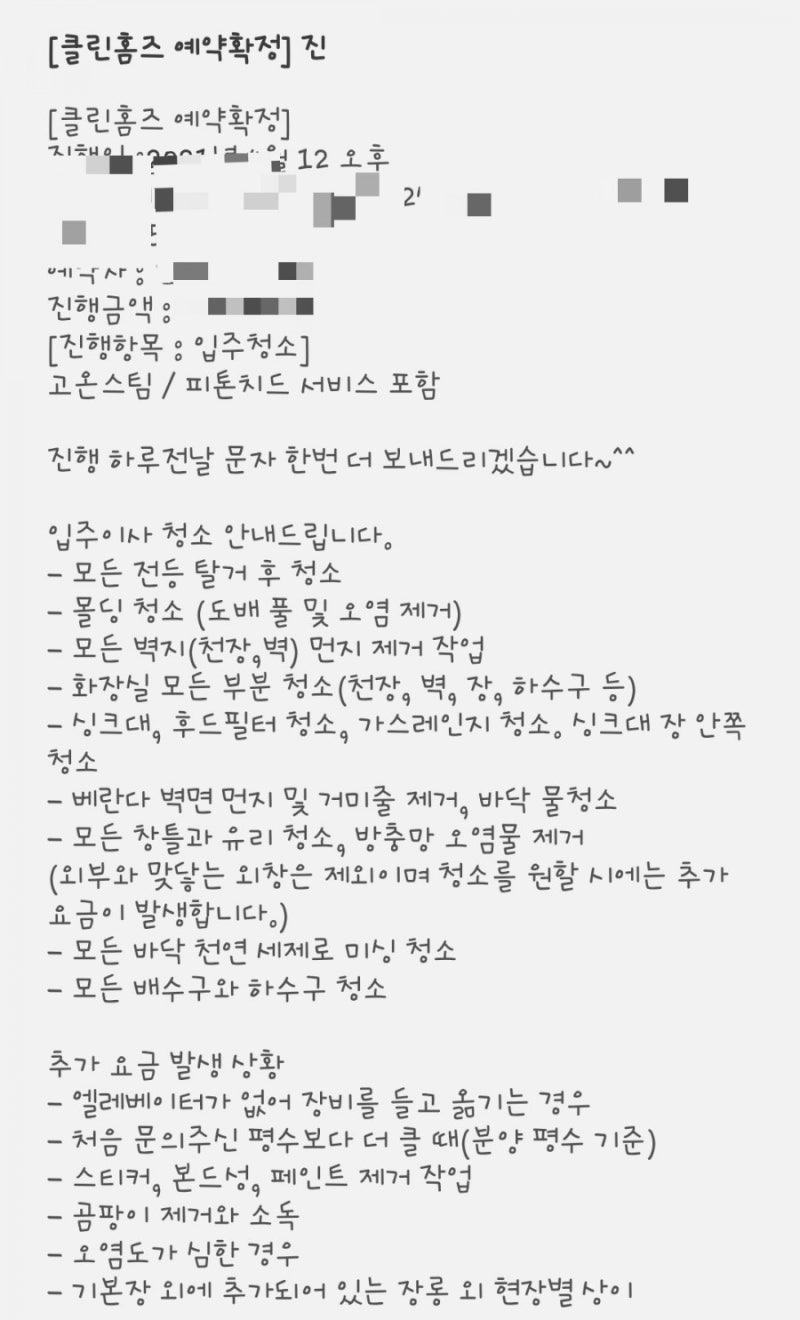 [클린홈즈 예약확정] 진
[클린홈즈 예약확정]
12 오후
진행금액 :
[진행항목 : 입주청소]
고온스팀 / 피톤치드 서비스 포함
진행 하루전날 문자 한번 더 보내드리겠습니다~^^
입주이사 청소 안내드립니다.
- 모든 전등 탈거 후 청소
- 몰딩 청소 (도배 풀 및 오염 제거)
- 모든 벽지(천장,벽) 먼지 제거 작업
- 화장실 모든 부분 청소(천장, 벽, 장, 하수구 등)
- 싱크대, 후드필터 청소, 가스레인지 청소. 싱크대 장 안쪽
청소
- 베란다 벽면 먼지 및 거미줄 제거, 바닥 물청소
- 모든 창틀과 유리 청소, 방충망 오염물 제거
(외부와 맞닿는 외창은 제외이며 청소를 원할 시에는 추가
요금이 발생합니다.)
- 모든 바닥 천연 세제로 미싱 청소
- 모든 배수구와 하수구 청소
추가 요금 발생 상황
- 엘레베이터가 없어 장비를 들고 옮기는 경우
- 처음 문의주신 평수보다 더 클 때(분양 평수 기준)
- 스티커, 본드성, 페인트 제거 작업
- 곰팡이 제거와 소독
- 오염도가 심한 경우
- 기본장 외에 추가되어 있는 장롱 외 현장별 상이